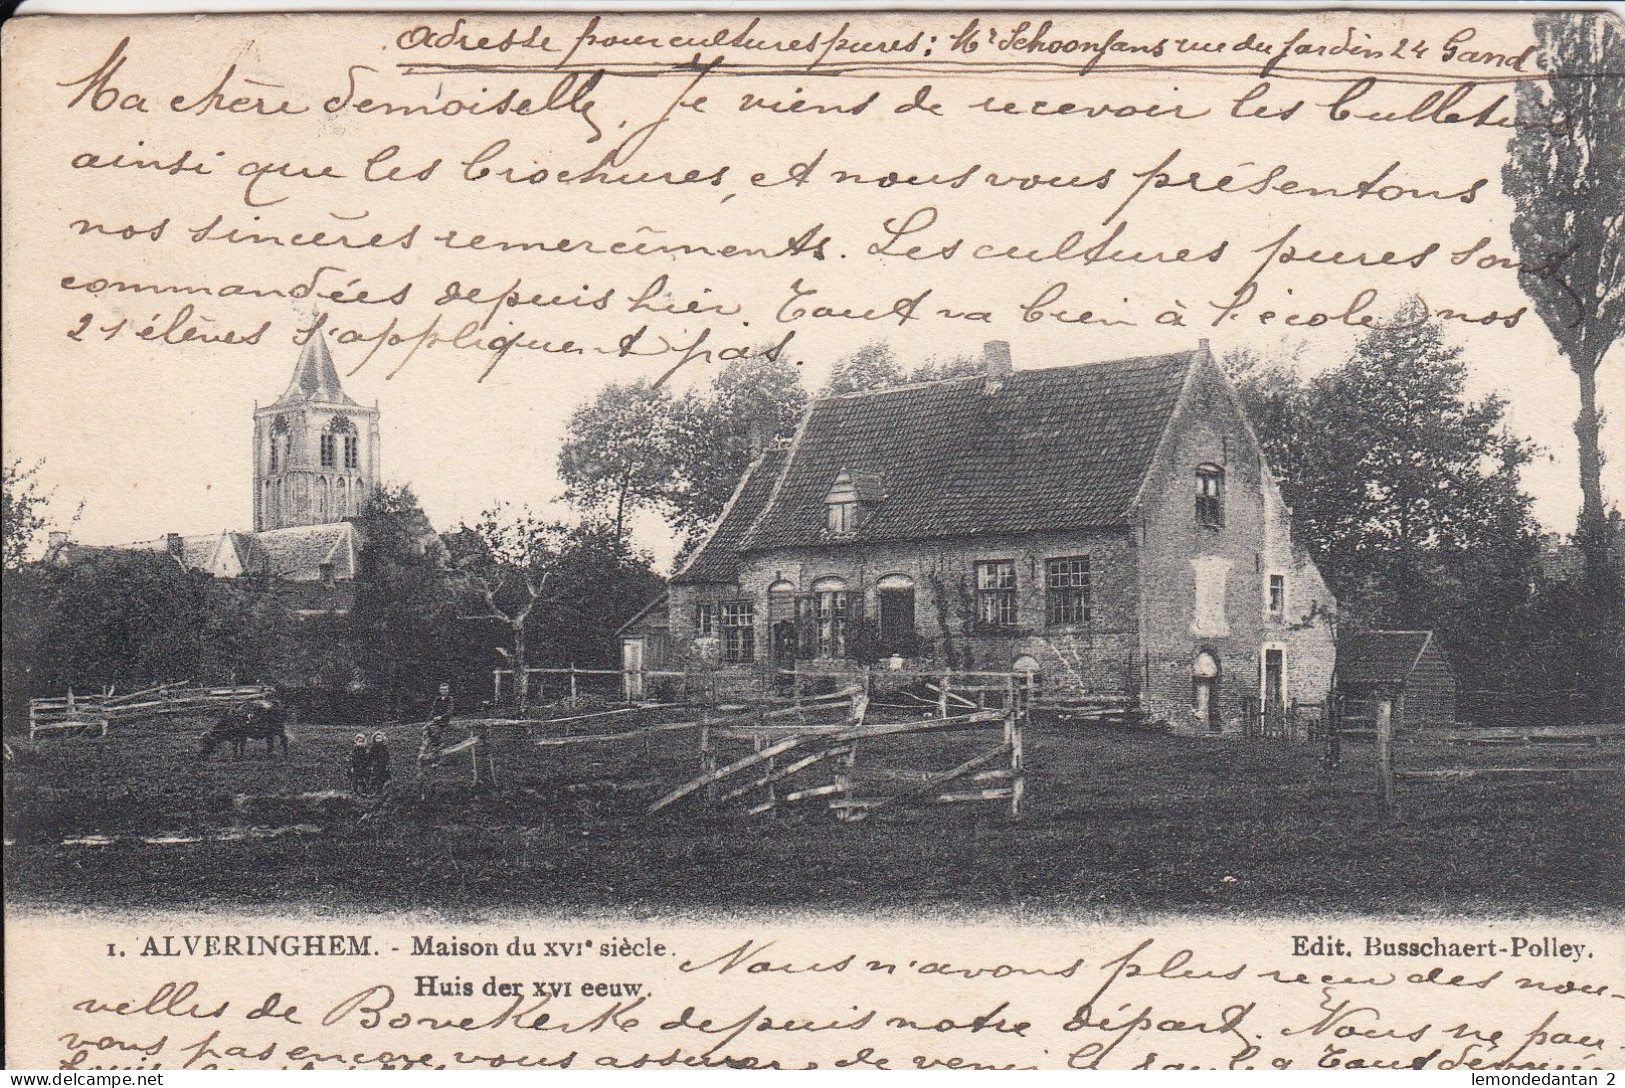 Adresse pour cultures pures : Mr Schoonjans rue du Jardin 24 Gand
Ma chère demoiselle, Je viens de recevoir les bulletins
ainsi que les brochures, et nous vous présentons
nos sincères remercîments. Les cultures pures sont
commandées depuis hier. Tout va bien à l'école, nos
21 élèves s'appliquent pas.
1. ALVERINGHEM. - Maison du XVIe siècle.
Huis der XVI eeuw.
Edit. Busschaert-Polley.
Nous n'avons plus reçu des nou-
velles de Bovekerke depuis notre départ. Nous ne pou-
vons pas encore vous assurer de venir le
Tout dévoué
lemondedantan 2